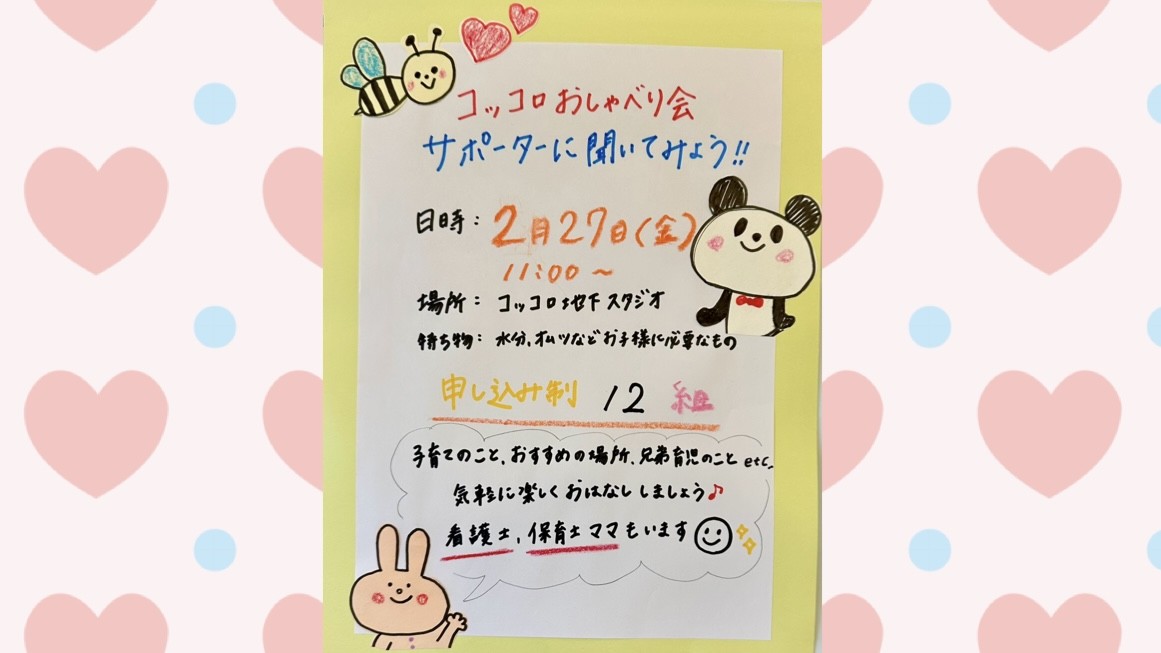 コッコロおしゃべり会
サポーターに聞いてみよう!!
日時：2月27日(金)
11:00～
場所：コッコロ地下スタジオ
持ち物：水分、オムツなどお子様に必要なもの
申し込み制 12組
子育てのこと、おすすめの場所、兄弟育児のことetc_
気軽に楽しくおはなししましょう♪
看護士、保育士ママもいます